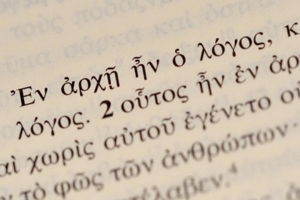 Ἐν ἀρχῇ ἦν ὁ λόγος, κ
λόγος. 2 οὗτος ἦν ἐν ἀρ
αὶ χωρὶς αὐτοῦ ἐγένετο οὐ
ν τὸ φῶς τῶν ἀνθρώπων·
έλαβεν.⁴